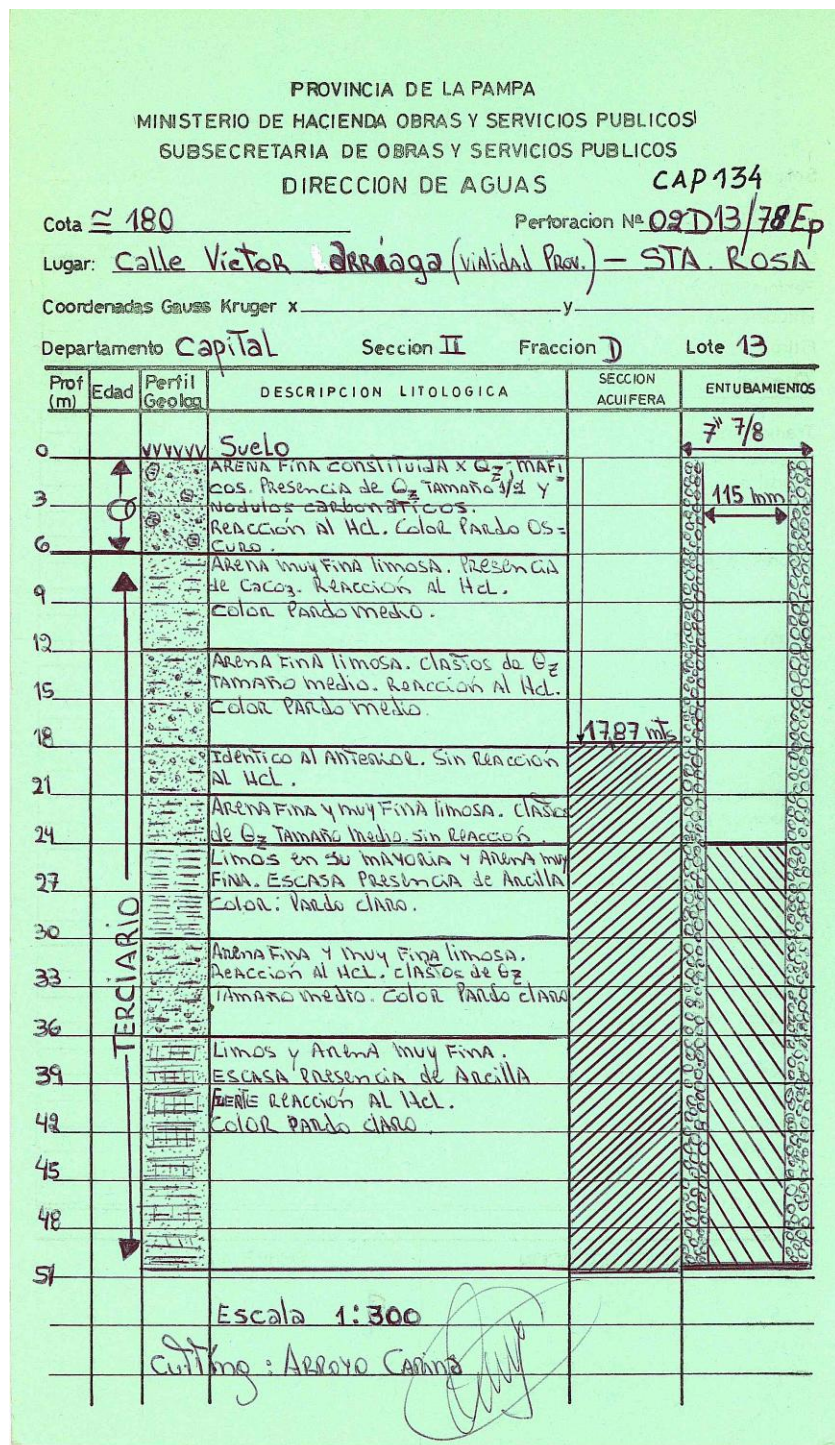 PROVINCIA DE LA PAMPA
MINISTERIO DE HACIENDA OBRAS Y SERVICIOS PUBLICOS
SUBSECRETARIA DE OBRAS Y SERVICIOS PUBLICOS
DIRECCION DE AGUAS CAP 134
Cota ≃ 180 Perforacion Nº 02D13/78Ep
Lugar: Calle Victor Arriaga (Vialidad Prov.) - STA. ROSA
Coordenadas Gauss Kruger x y
Departamento Capital Seccion II Fraccion D Lote 13
Prof (m) Edad Perfil Geolog DESCRIPCION LITOLOGICA SECCION ACUIFERA ENTUBAMIENTOS
7" 7/8
0 Suelo
ARENA FINA constituida x Qz, MAFI=
cos. Presencia de Qz TAMAÑO 1/2 y
3 Nodulos carbonáticos. 115 mm
Reacción al Hcl. Color Pardo OS=
6 CURO.
Arena muy Fina limosa. Presencia
9 de CaCO3. Reacción al Hcl.
Color Pardo medio.
12
Arena Fina limosa. clastos de Qz
15 TAMAÑO medio. Reacción al Hcl.
Color Pardo medio.
18 17,87 mts
Identico al Anterior. Sin Reacción
21 al Hcl.
Arena Fina y muy Fina limosa. Clastos
24 de Qz TAMAÑO medio. Sin Reacción.
Limos en su mayoria y Arena muy
27 FINA. ESCASA Presencia de Arcilla
Color: Pardo claro.
30
Arena Fina y muy Fina limosa.
33 Reaccion al Hcl. clastos de Qz
TAMAÑO medio. Color Pardo claro
36
TERCIARIO
Limos y Arena muy Fina.
39 ESCASA presencia de Arcilla
FUERTE reacción al Hcl.
42 Color Pardo claro
45
48
51
Escala 1:300
Cutting: ARROYO Carina